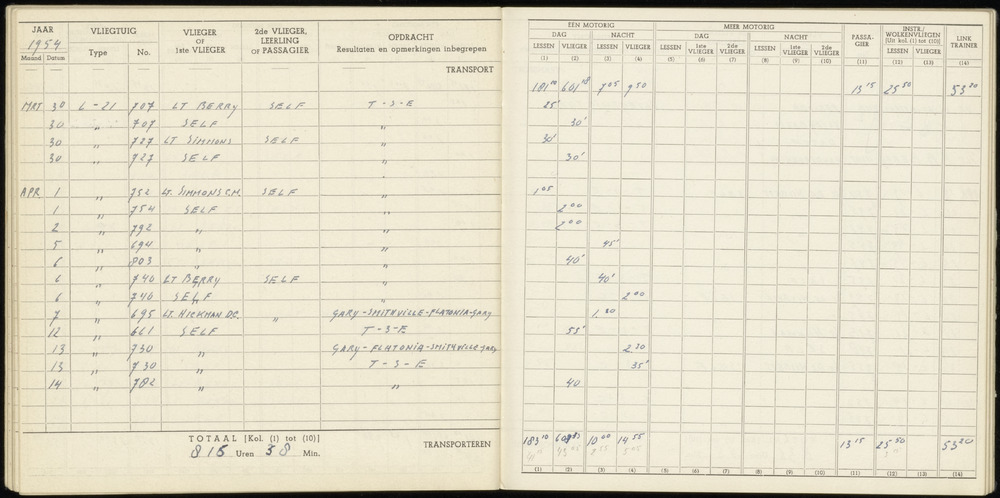 JAAR VLIEGTUIG VLIEGER OF 1ste VLIEGER 2de VLIEGER, LEERLING OF PASSAGIER OPDRACHT
1954 Type No. Resultaten en opmerkingen inbegrepen
Maand Datum
TRANSPORT
MRT 30 L-21 707 LT BERRY SELF T-S-E
30 " 707 SELF "
30 " 727 LT SIMMONS SELF "
30 " 727 SELF "
APR 1 " 752 LT. SIMMONS C.M. SELF "
1 " 754 SELF "
2 " 792 " "
5 " 694 " "
6 " 803 " "
6 " 740 LT BERRY SELF "
6 " 740 SELF "
7 " 695 LT. HICKMAN D.C. " GARY-SMITHVILLE-FLATONIA-GARY
12 " 661 SELF T-S-E
13 " 730 " GARY-FLATONIA-SMITHVILLE-GARY
13 " 730 " T-S-E
14 " 782 " "
TOTAAL [Kol. (1) tot (10)] TRANSPORTEREN
815 Uren 38 Min.
EEN MOTORIG MEER MOTORIG PASSA-GIER INSTR./WOLKENVLIEGEN [Uit kol. (1) tot (10)] LINK TRAINER
DAG NACHT DAG NACHT
LESSEN VLIEGER LESSEN VLIEGER LESSEN 1ste VLIEGER 2de VLIEGER LESSEN 1ste VLIEGER 2de VLIEGER LESSEN VLIEGER
(1) (2) (3) (4) (5) (6) (7) (8) (9) (10) (11) (12) (13) (14)
181 601 7 05 9 50 13 15 25 50 53 20
25'
30'
30'
30'
1 05
2 00
2 00
45'
40'
40'
2 00
1.
55'
2.30
35'
40
183 10 10 00 14 55 13 15 25 50 53 20
(1) (2) (3) (4) (5) (6) (7) (8) (9) (10) (11) (12) (13) (14)